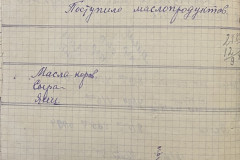 Поступило маслопродуктов
Масла коров
Сыра
Яиц